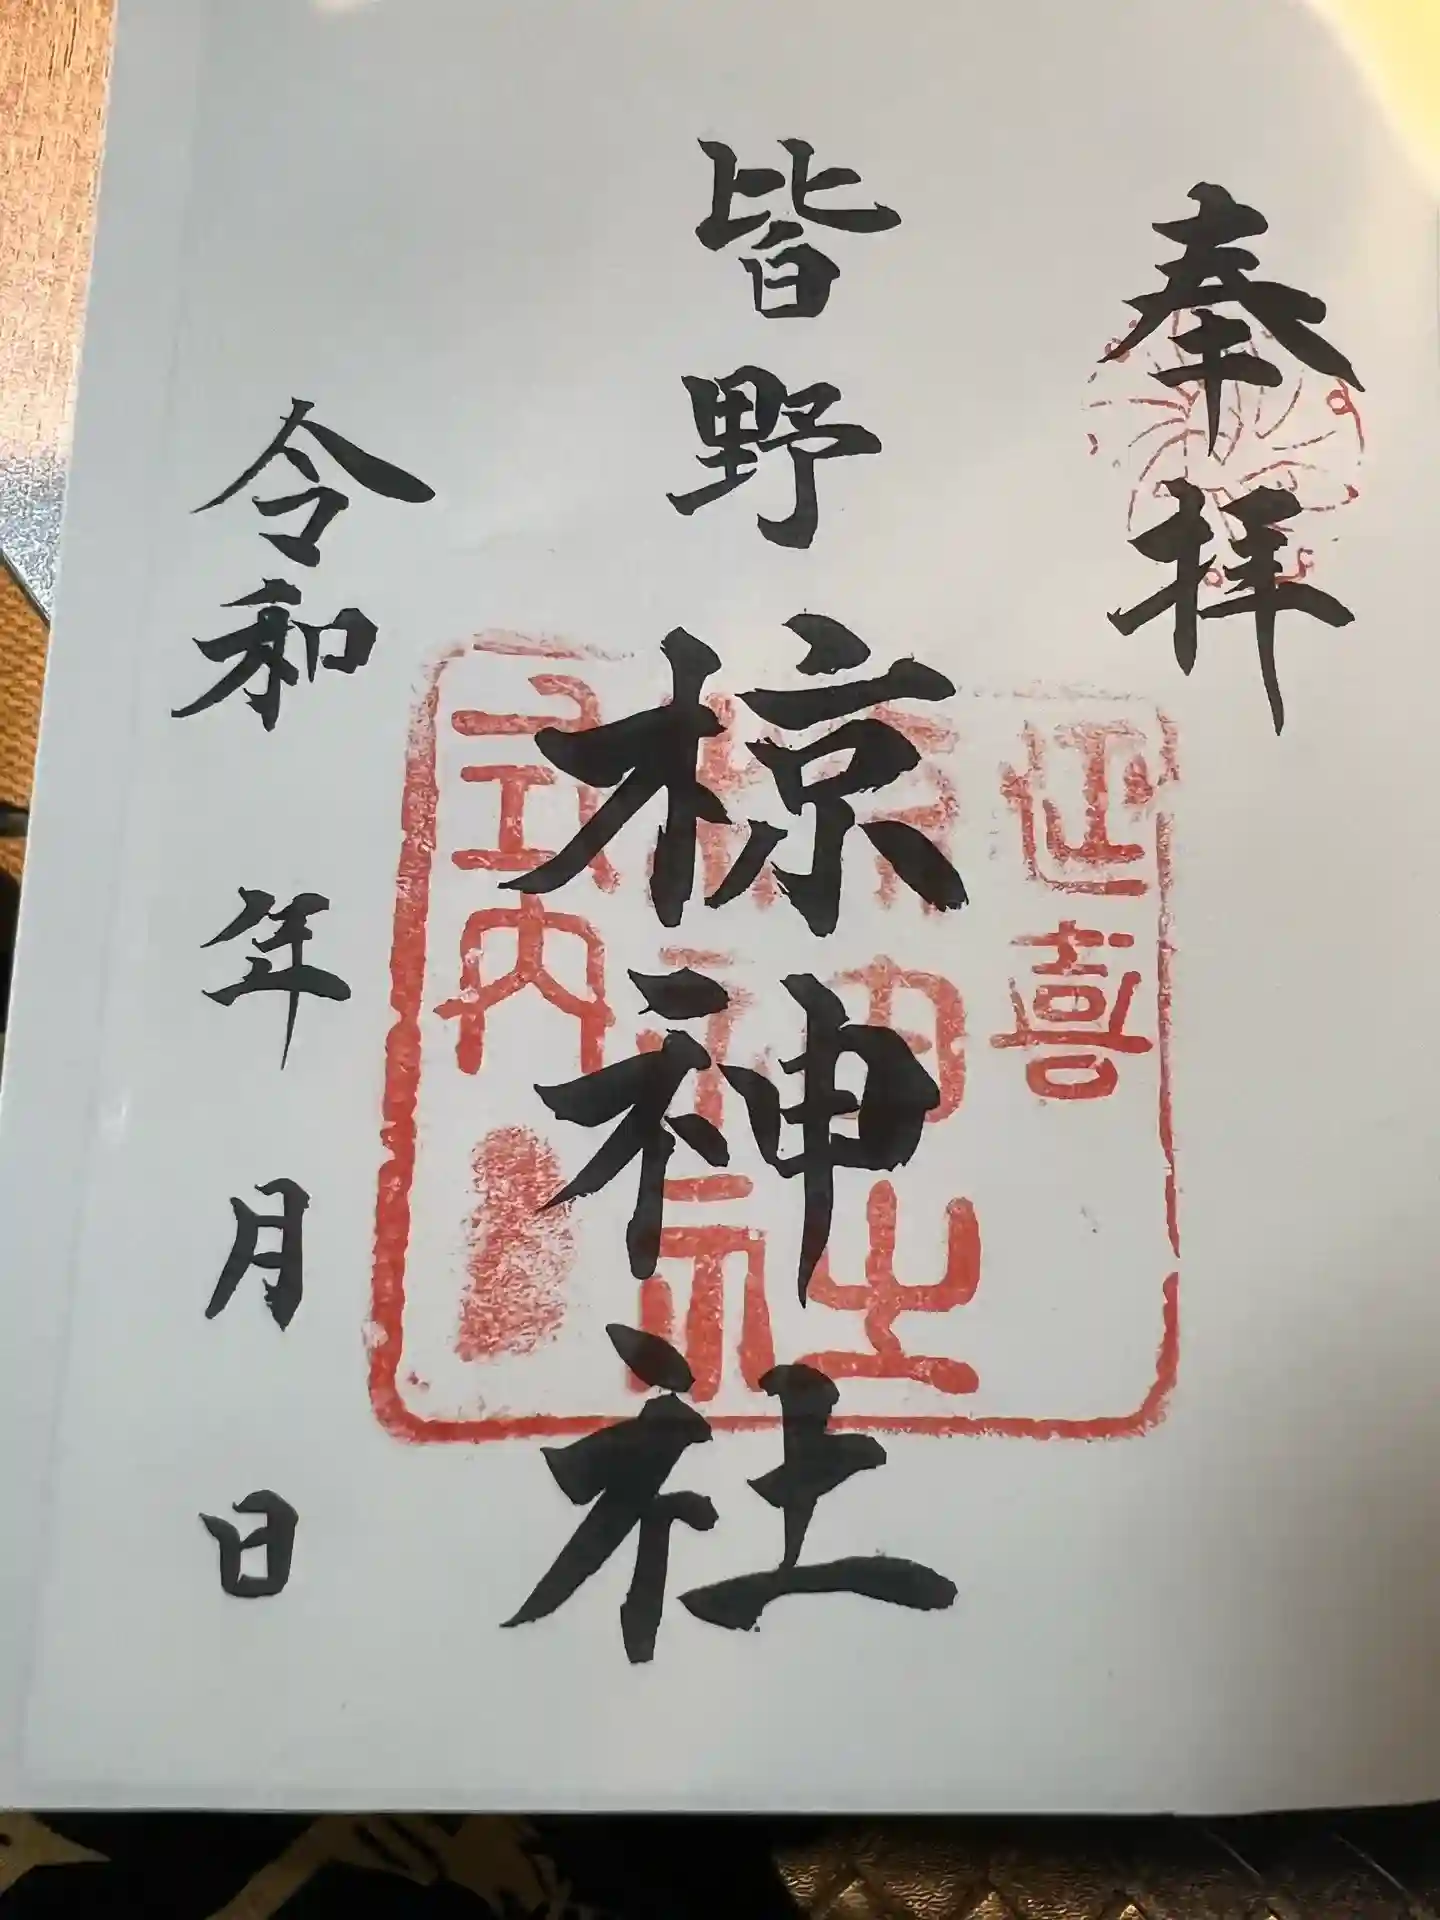 奉拝
皆野
椋神社
延喜
椋神社
式内
令和 年 月 日